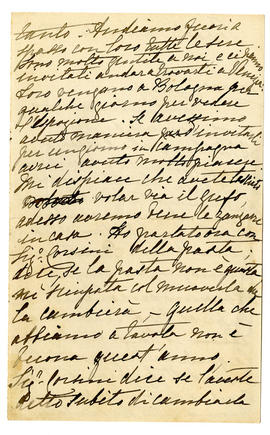 tanto. Andiamo fuori a
spasso con loro tutte le sere.
Sono molto gentili a noi e ci hanno
invitati andare a trovarli a
Loro vengano a Bologna per
qualche giorno per vedere
l'Esposizione. Se avessimo
avuto maniera per invitarli
per un giorno in Campagna
avrei avuto molto piacere
Mi dispiace che avete lasciato
volar via il gufo,
adesso avremo bene le zanzare
in casa. Ho parlato ora con
Sig. Corsini della pasta,
dice, se la pasta non è questa
mi
la cambierà, quella che
abbiamo a tavola non è
buona quest'anno.
Sig. Corsini dice se l'avete
detto subito di cambiarla